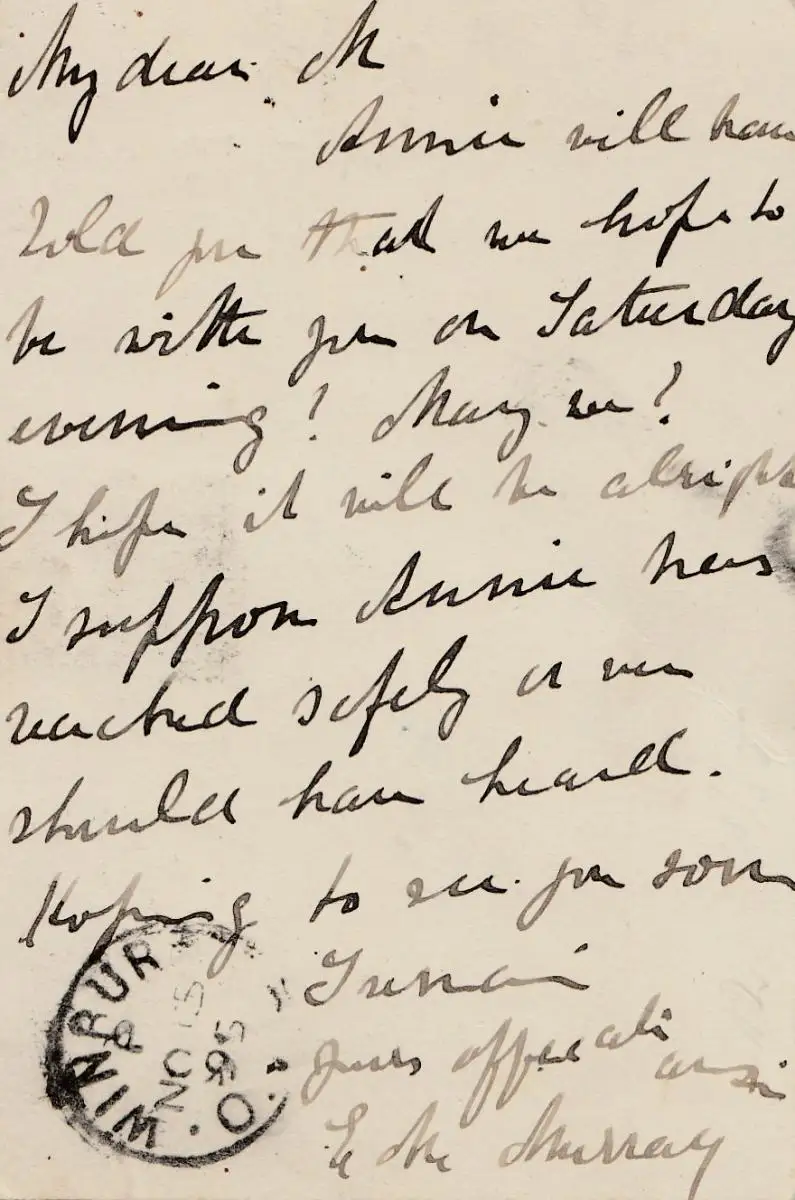 My dear M
Annie will have
told you that we hope to
be with you on Saturday
evening! May we?
I hope it will be alright
I suppose Annie has
reached safely or we
should have heard.
Hoping to see you soon
I remain
yours affec ate
E M Murray
WINBURG
NO 15
95
O.